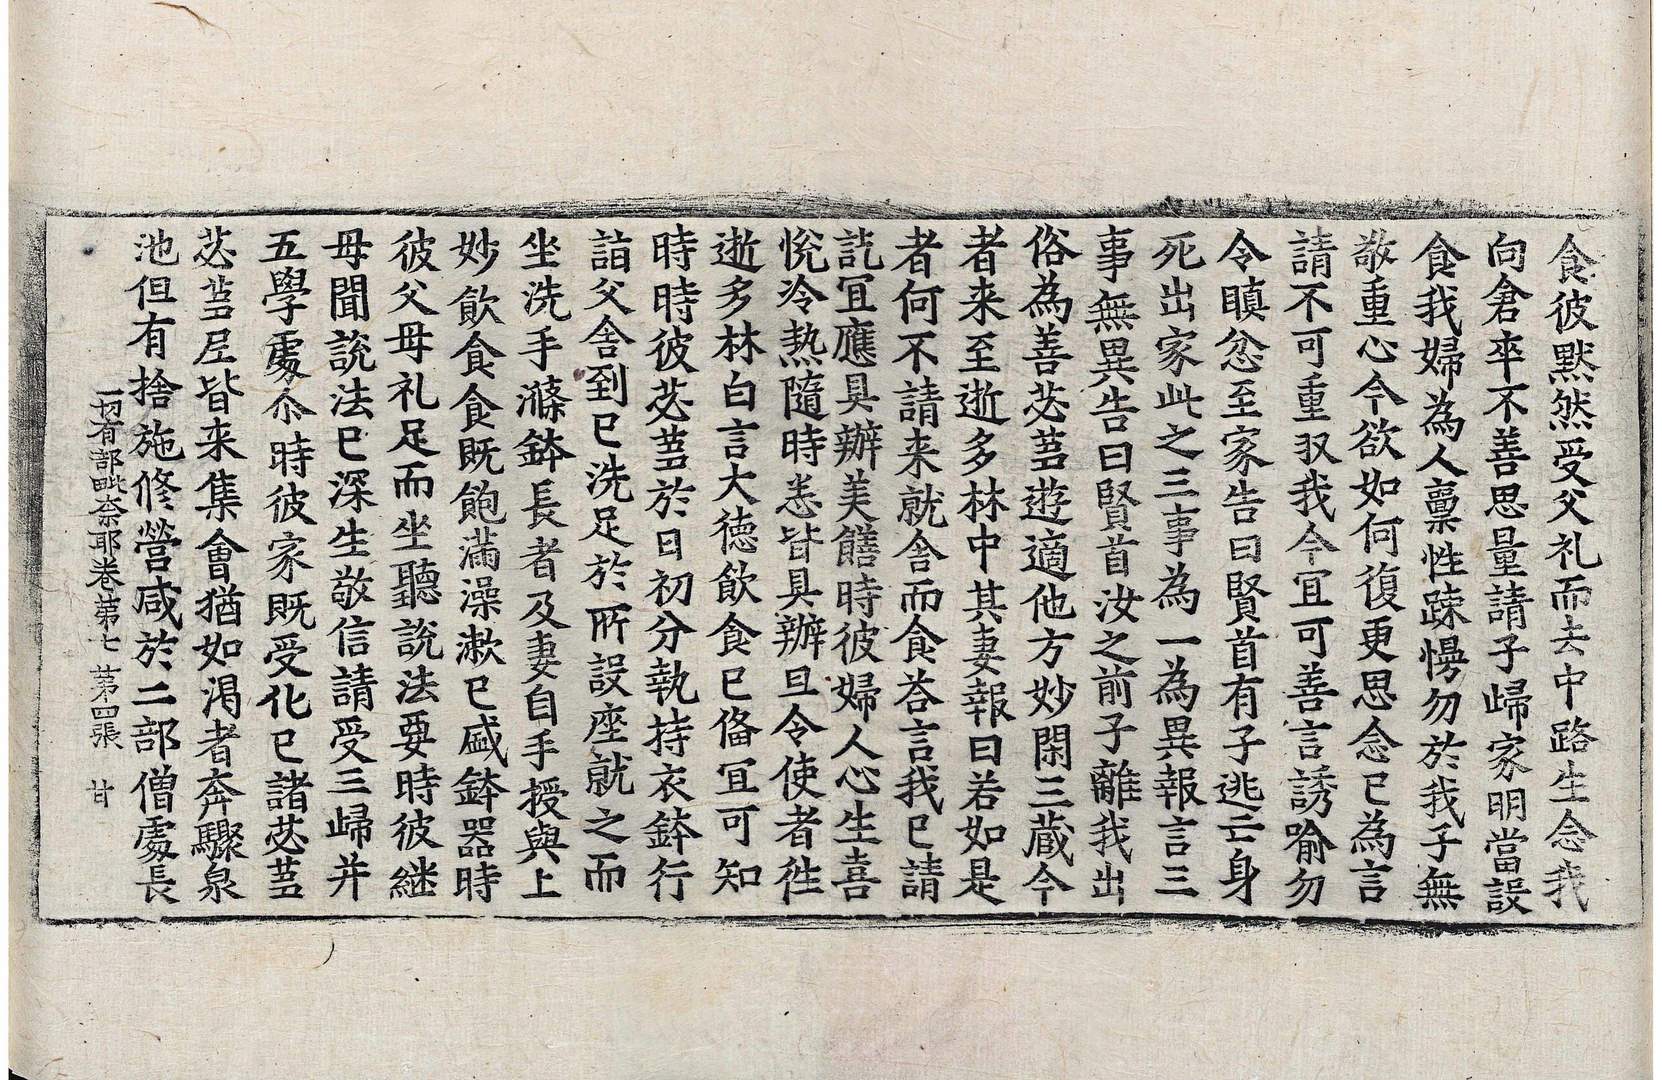 食彼黙然受父礼而去中路生念我
向倉卒不善思量請子歸家明當設
食我婦為人稟性踈慢勿於我子無
敬重心今欲如何復更思念已為言
請不可重収我今宜可善言誘喻勿
令瞋忿至家告曰賢首有子逃亡身
死出家此之三事為一為異報言三
事無異告曰賢首汝之前子離我出
俗為善苾蒭遊適他方妙閑三蔵今
者来至逝多林中其妻報曰若如是
者何不請来就舎而食荅言我已請
訖冝應具辦美饍時彼婦人心生喜
悅冷熱隨時悉皆具辦旦令使者徃
逝多林白言大德飲食已偹冝可知
時時彼苾蒭於日初分執持衣鉢行
詣父舎到已洗足於所設座就之而
坐洗手滌鉢長者及妻自手授與上
妙飲食食既飽滿澡漱已盛鉢器時
彼父母礼足而坐聽説法要時彼継
母聞說法已深生敬信請受三歸并
五學䖏尒時彼家既受化已諸苾蒭
苾蒭尼皆来集會猶如渇者奔驟泉
池但有捨施修營咸於二部僧䖏長
一切有部毗奈耶卷第七 第四張 甘